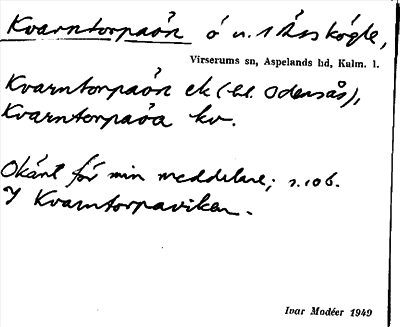 Kvarntorpaön ö u. 1 Åsskögle,
Virserums sn, Aspelands hd, Kalm. l.
Kvarntorpaön ek (bl. Odensås),
Kvarntorpaöa kv.
Okänt för min meddelare; s. 106.
I Kvarntorpaviken.
Ivar Modéer 1949